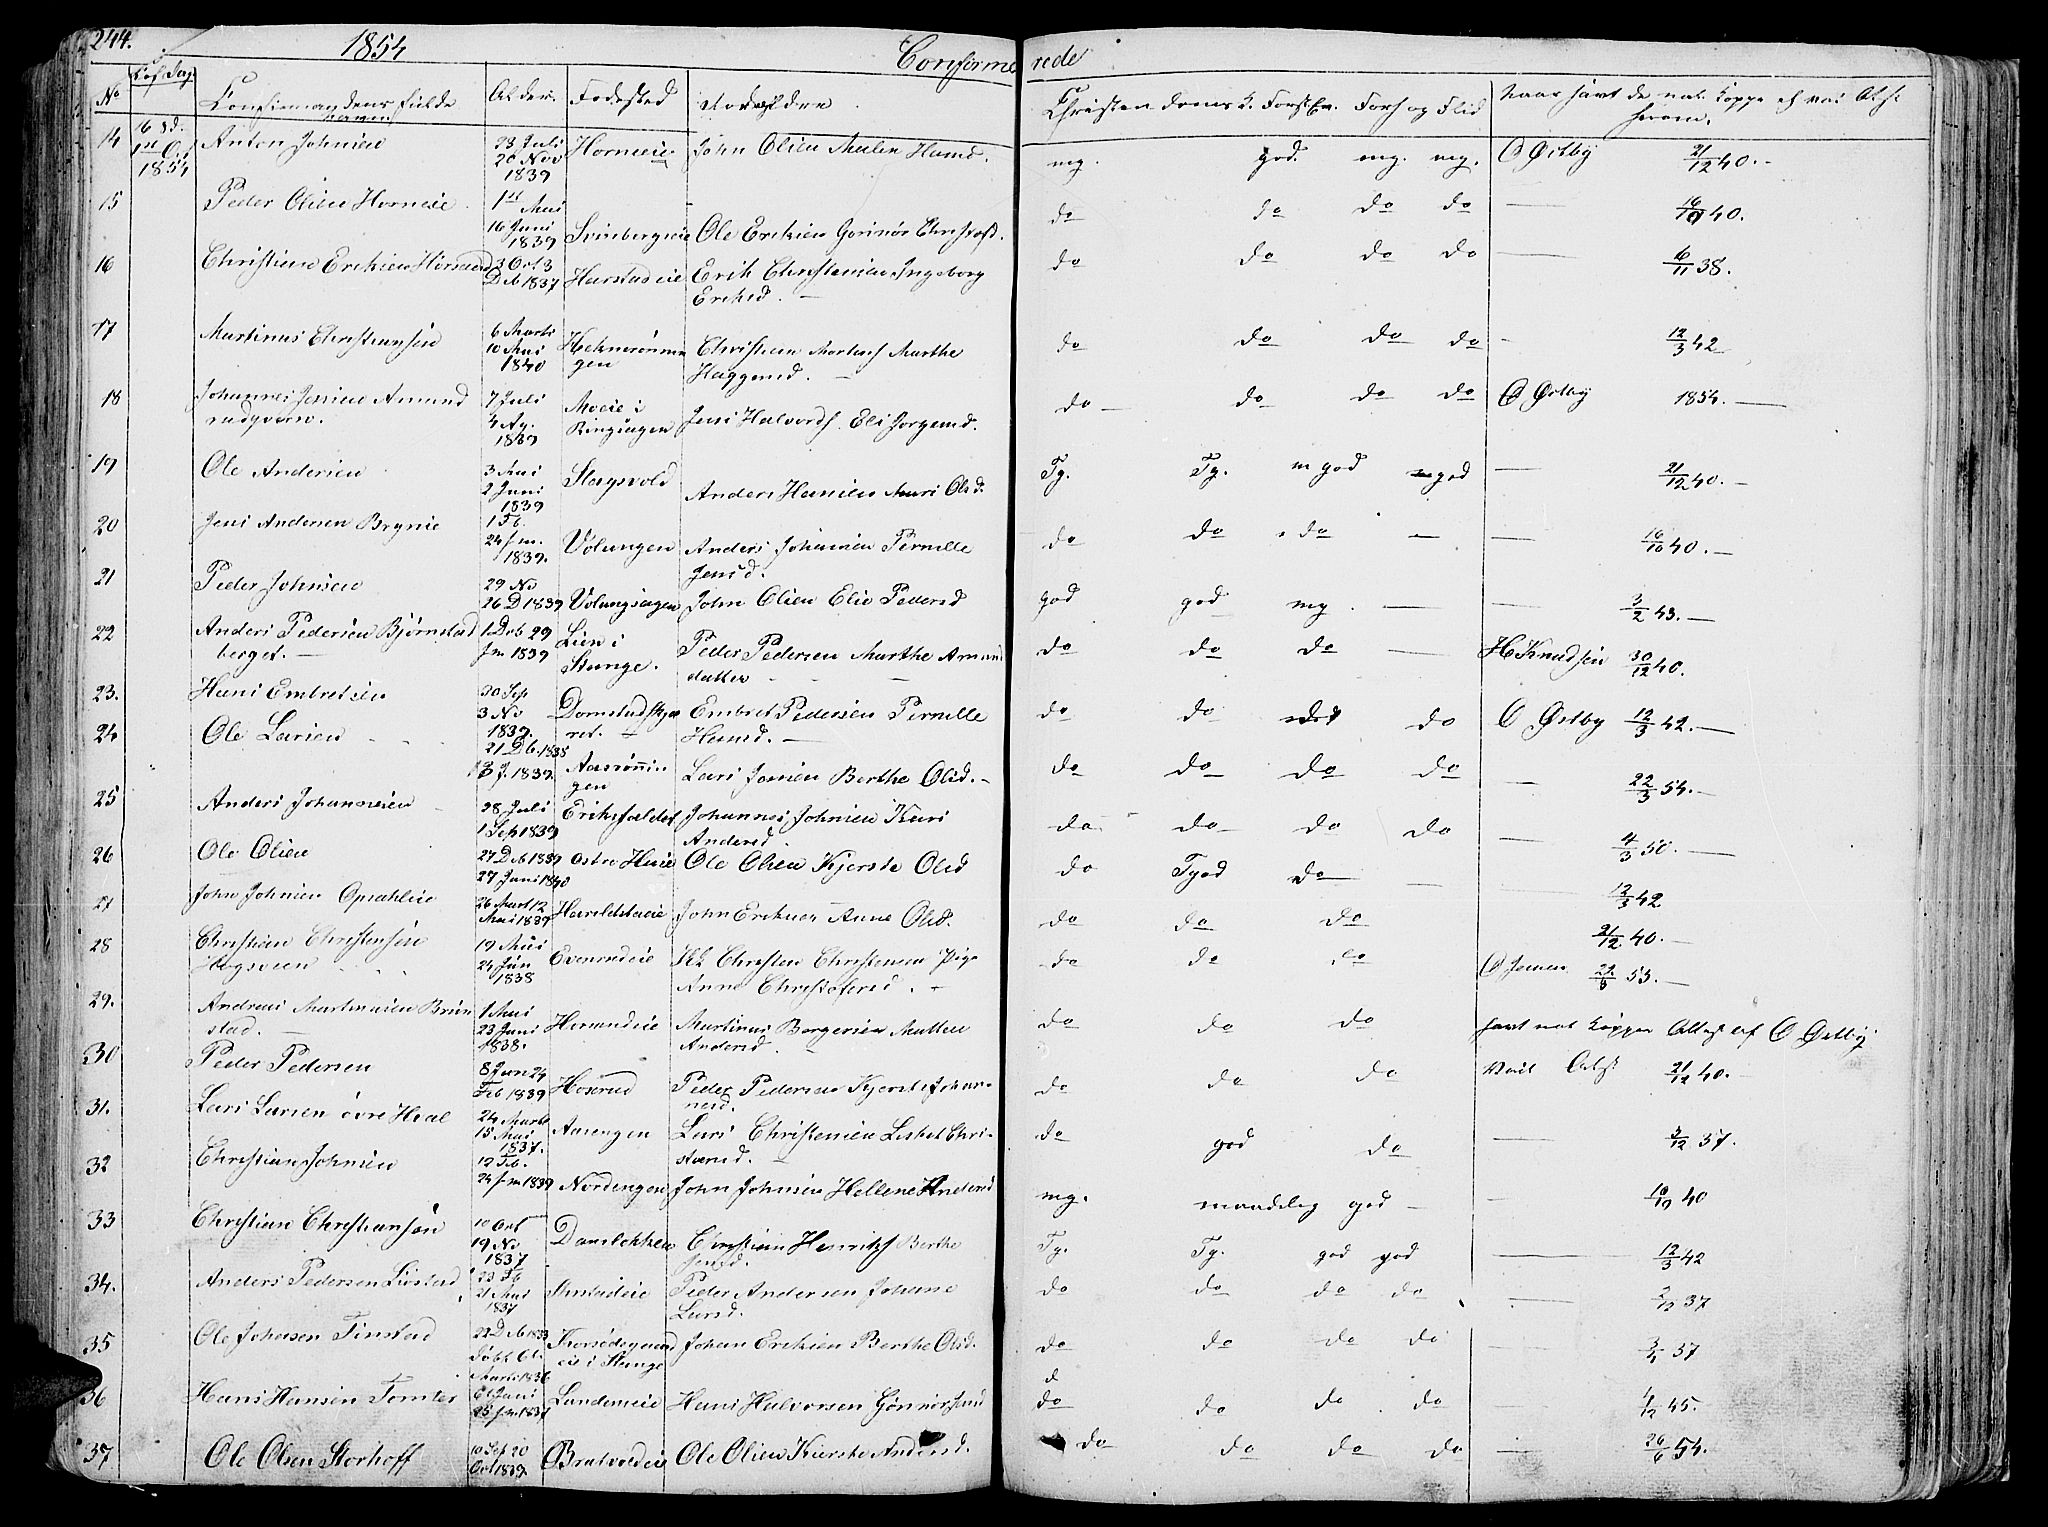 244.
1854
Conformerede
No
Conf. Dag
Confirmandens fulde Navn
Alder.
Fødested
Forældre
Christendoms K. Forst Ev. Forh og Flid
naar havt de nat. Kopper el vac Atst herom.
16 Sd. 1ste Oct 1854
14 Anton Johnsen 23 Juli 20 Nov 1839 Horneeie John Olsen Malen Hansd. mg. god. mg. mg. O Østby 21/12 40.-
15 Peder Olsen Horneeie 1ste Mai 16 Juni 1839 Svinbergeie Ole Eriksen Gorinør Christofd. do do do do — 16/10 40.
16 Christian Eriksen Horneeie 3 Oct 3 Deb 1837 Harstadeie Erik Christensen Ingeborg Eriksd. — do do do do — 6/11 38.
17 Martinus Christiansen 6 Marts 10 Mai 1840 Heknerønningen Christian Martinsf Marthe Haggensd. — do do do do - 12/3 42
18 Johannes Jensen Amundrudqvern. 7 Juli 4 Ag. 1839 Moeie i Ringsagen Jens Halvords. Eli Jørgensd. do — do do do O Østby 1854. —
19 Ole Andersen 3 Mai 2 Juni 1839 Stagsvold Anders Hansen Mari Olsd. Tg. Tg. m god mgod — 21/12 40. -
20 Jens Andersen Brynie 1 Fb. 24 f.m. 1839. Volungen Anders Johansen Pernille Jensd. do do do — — 16/10 40. —
21 Peder Johnsen 29 No 26 D 1839 Volungsagen John Olsen Elie Pedersd god god mg. — — 3/2 43. —
22 Anders Pedersen Bjørnstadberget. — 1 Deb 29 f.m 1839 Lien i Stange. Peder Pedersen Marthe Amundsdatter do do do — H Knudsen 30/12 40.
23. Hans Embretsen 30 Sep 3 No 1839. Dornstadskjæret. Embret Pedersen Pernille Hansd. — do do do do O Østby 12/3 42. —
24 Ole Larsen 21 Db. 1838 13 J. 1839. Aasrønningen Lars Jansen Berthe Olsd. - do do do do — 22/3 54. —
25 Anders Johannesen 28 Juli 1 Sep 1839 Eriksfaldet Johannes Johnsen Kari Andersd. do do do do — 4/3 50. —
26 Ole Olsen 27 Deb 1839 27 Juni 1840 Østre Huse Ole Olsen Kjerste Olsd do Tgod do — — 12/3 42
27 John Johnsen Opsahleie 26 Mart 12 Mai 1839 Haraldstaeie John Eriksen Anne Olsd. do do do 21/12 40. —
28 Christian Christensen Hogsveen 19 Mai 24 Jun 1838 Evenrudeie Ukk Christen Christensen Pige Anne Christofersd. do do do O Jensen 29/8 53. —
29. Andreas Martinusen Brunstad. — 1 Mai 23 Juni 1838. Herundeie Martinus Borgersen Mathea Andersd. do do do havt nat Kopper Attest af O Østby
30 Peder Pedersen 8 Jan 24 Feb 1839 Hoserud Peder Pedersen Kjerste Johannesd. do do do Vacc Atst 21/12 40. -
31. Lars Larsen øvre Hval 24 Marts 15 Mai 1837. Aasengen Lars Christensen Lisbet Christiansd. do god do — 3/12 37.
32 Christian Johnsen 12 Feb. 24 f.m 1839 Nordengen John Johnsen Hellene Andersd mg. maadelig god — — 10/10 40
33 Christian Christiansen 10 Oct 19 No 1837 Danslokken Christian Henriksf Berthe Jensd. Tg. Tg. god god — 12/3 42
34. Anders Pedersen Løstad 23 Fb 21 Mai 1837 Anstadeie Peder Andersen Johanne Larsd. do do do do — 2/12 37
35 Ole Johansen Finstad 22 Deb 1833 døbt 61. Marts 1836 Korsødegaardeie i Stange Johan Eriksen Berthe Olsd. do do do do — 3/4 37
36 Hans Hansen Tomter 61 Juni 25 f.m. 1837 Sandemeie Hans Halvorsen Gønnor do do do do 1/12 45.
37 Ole Olsen Storhoff 10 Sep 20 Oct 1839. Bratvoldeie Ole Olsen Kierste Andersd. do do do do — 26/6 54.